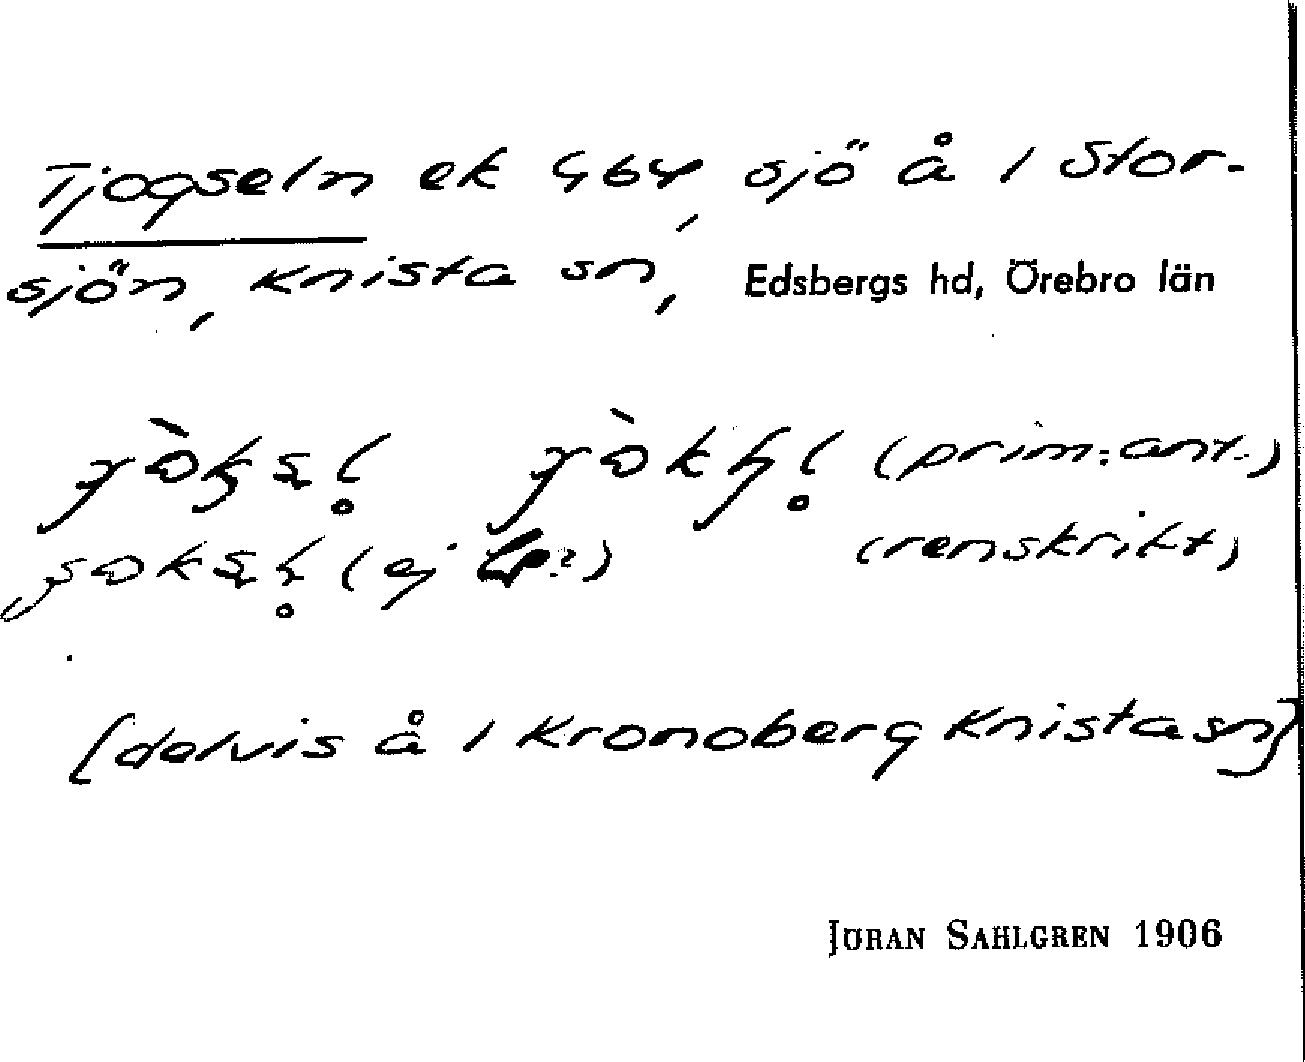 Tjogseln ek 464, sjö å 1 Stor-
sjön, Knista sn, Edsbergs hd, Örebro län
(prim. ant.)
(ej ?) (renskrift)
[delvis å 1 Kronoberg Knista sn]
JÖRAN SAHLGREN 1906